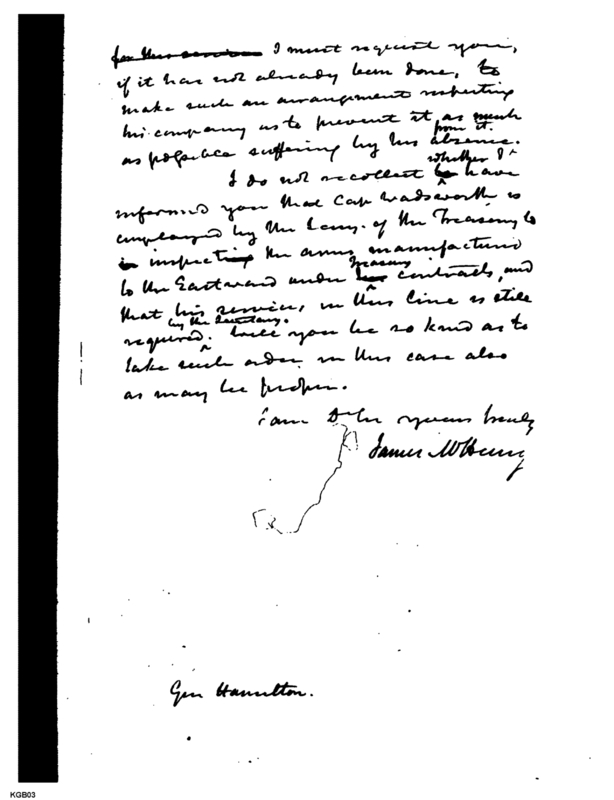 for this service I must request you,
if it has not already been done, to
make such an arrangement respecting
his company as to prevent it as much
from it.
as possible suffering by his absence.
whether I
I do not recollect to have
informed you that Cap Wadsworth is
employed by the Secy. of the Treasury to
inspecting the arms manufactured
Treasury
to the Eastward under contracts, and
that his services, in this line is still
by the Secretary.
required. Will you be so kind as to
take such order in this case also
as may be proper.
I am Dr Sir yours truly
James McHenry
Gen Hamilton.
KGB03